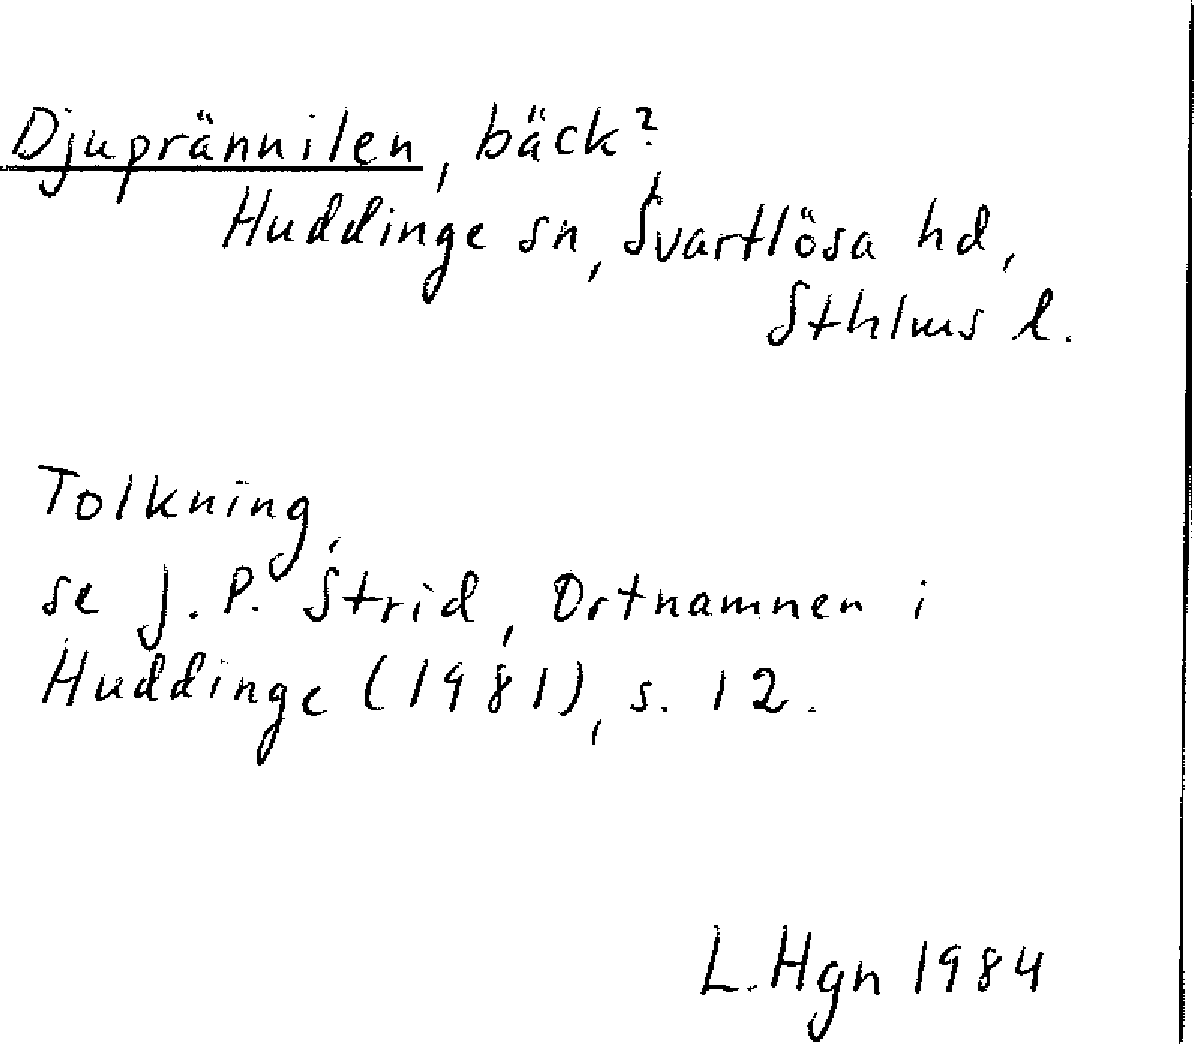 Djuprännilen, bäck?
Huddinge sn, Svartlösa hd,
Sthlms l.
Tolkning
se J. P. Strid, Ortnamnen i
Huddinge (1981), s. 12.
L. Hgn 1984